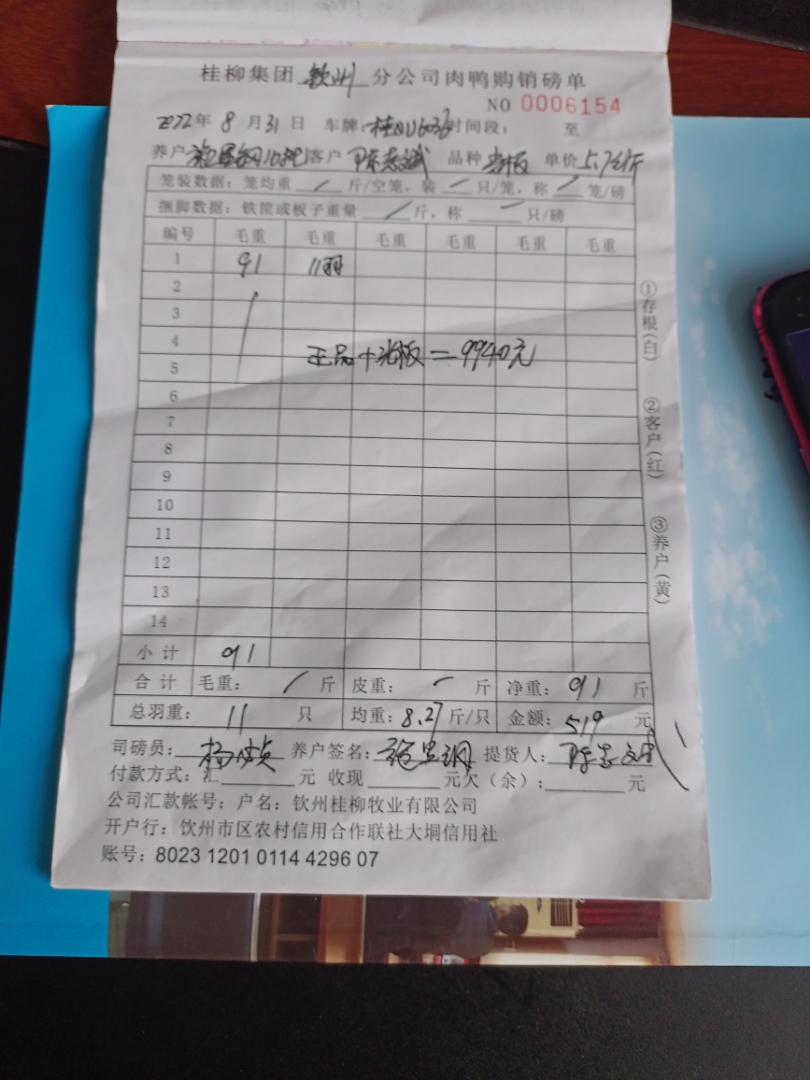 桂柳集团 钦州 分公司肉鸭购销磅单
NO 0006154
2022年 8 月 31 日 车牌: 桂N 时间段: 至
养户 客户 品种 单价 5.7元/斤
笼装数据: 笼均重 / 斤/空笼, 装 / 只/笼, 称 / 笼/磅
捆脚数据: 铁筐或板子重量 / 斤, 称 一 只/磅
编号 毛重 毛重 毛重 毛重 毛重 毛重
1 91 11羽
2
3
4
正品+光板=9940元
5
6
7
8
9
10
11
12
13
14
小计 91
合计 毛重: / 斤 皮重: - 斤 净重: 91 斤
总羽重: 11 只 均重: 8.27 斤/只 金额: 519 元
司磅员: 养户签名: 提货人:
付款方式: 汇 元 收现 元欠(余): 元
公司汇款帐号: 户名: 钦州桂柳牧业有限公司
开户行: 钦州市区农村信用合作联社大垌信用社
账号: 8023 1201 0114 4296 07
①存根(白)
②客户(红)
③养户(黄)